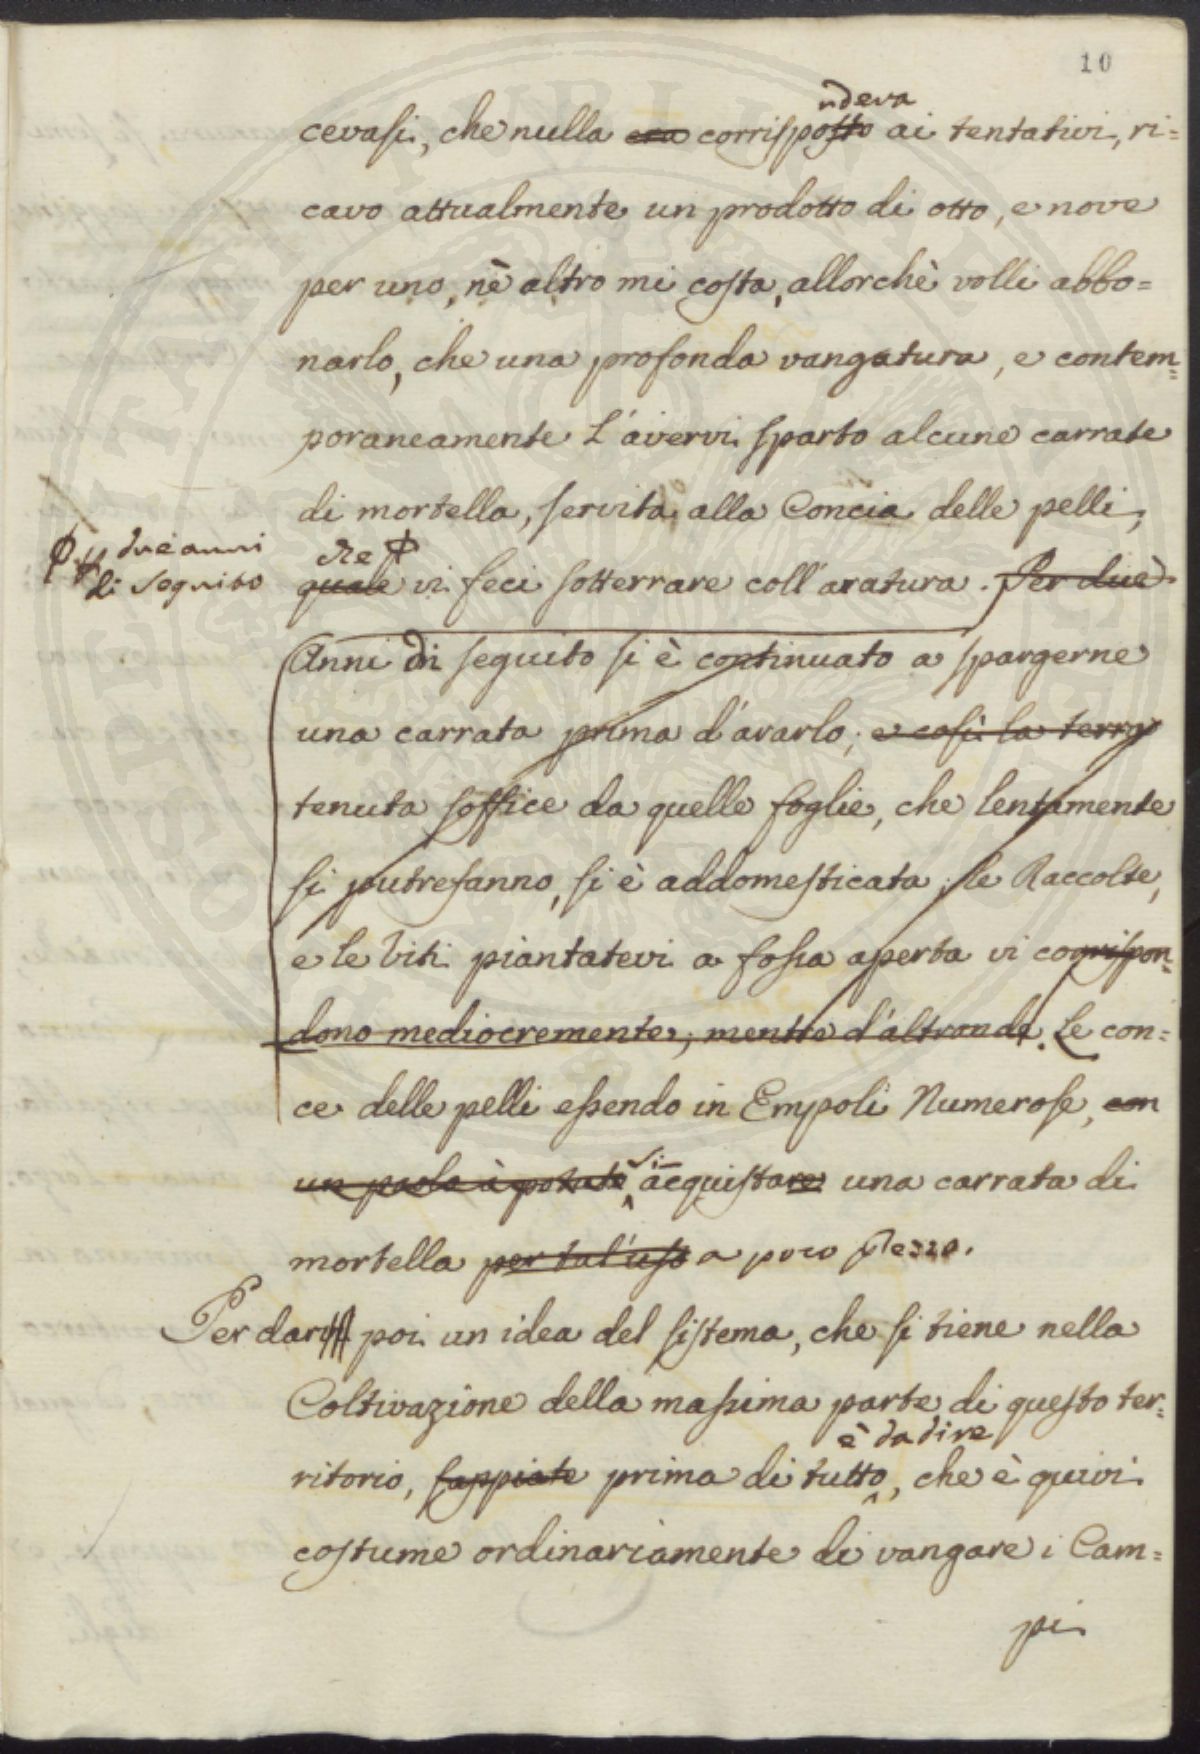 10
ndeva
cevasi, che nulla era corrisposto ai tentativi, ri=
cavo attualmente un prodotto di otto, e nove
per uno, nè altro mi costa, allorchè volli abbo=
narlo, che una profonda vangatura, e contem=
poraneamente L'avervi sparto alcune carrate
di mortella, servita alla Concia delle pelli,
due anni
di seguito
che
quale vi feci sotterrare coll'aratura. Per due
Anni di seguito si è continuato a spargerne
una carrata prima d'ararlo, e così la terra
tenuta soffice da quelle foglie, che lentamente
si putrefanno, si è addomesticata; le Raccolte,
e le Viti piantatevi a fossa aperta vi corrispon=
dono mediocremente, mentre d'altronde. Le con=
ce delle pelli essendo in Empoli Numerose, con
un paolo à potute si acquistare una carrata di
mortella per tal'uso a poco prezzo.
Per dar poi un idea del sistema, che si tiene nella
Coltivazione della massima parte di questo ter=
è da dire
ritorio, sappiate prima di tutto, che è quivi
costume ordinariamente di vangare i Cam=
pi